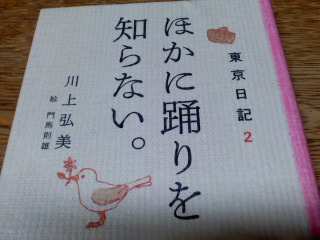 東京日記2
ほかに踊りを
知らない。
川上弘美
絵 門馬則雄